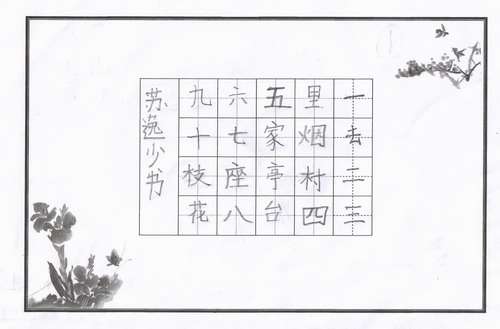 一去二三
里烟村四
五家亭台
六七座八
九十枝花
苏逸少书